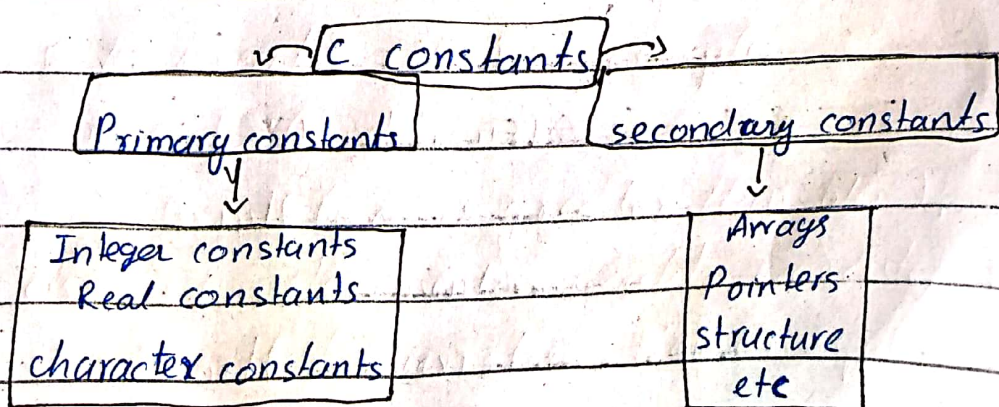 C constants
Primary constants
secondary constants
Integer constants
Real constants
character constants
Arrays
Pointers
structure
etc